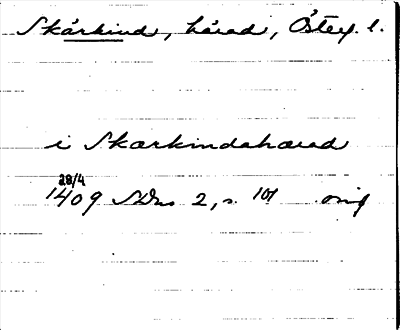 Skärkind, härad, Österg. l.
i Skærkindahæradh
28/4
1409 SDns 2, s. 101 orig